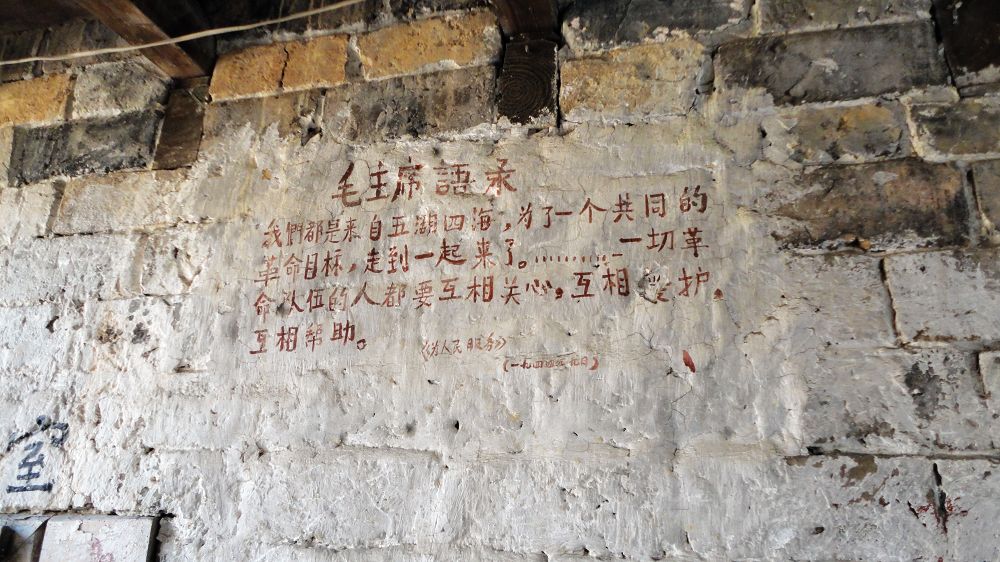 毛主席語录
我們都是来自五湖四海,为了一个共同的
革命目标,走到一起来了。………一切革
命队伍的人都要互相关心,互相护。
互相帮助。
《为人民服务》
(一九四四